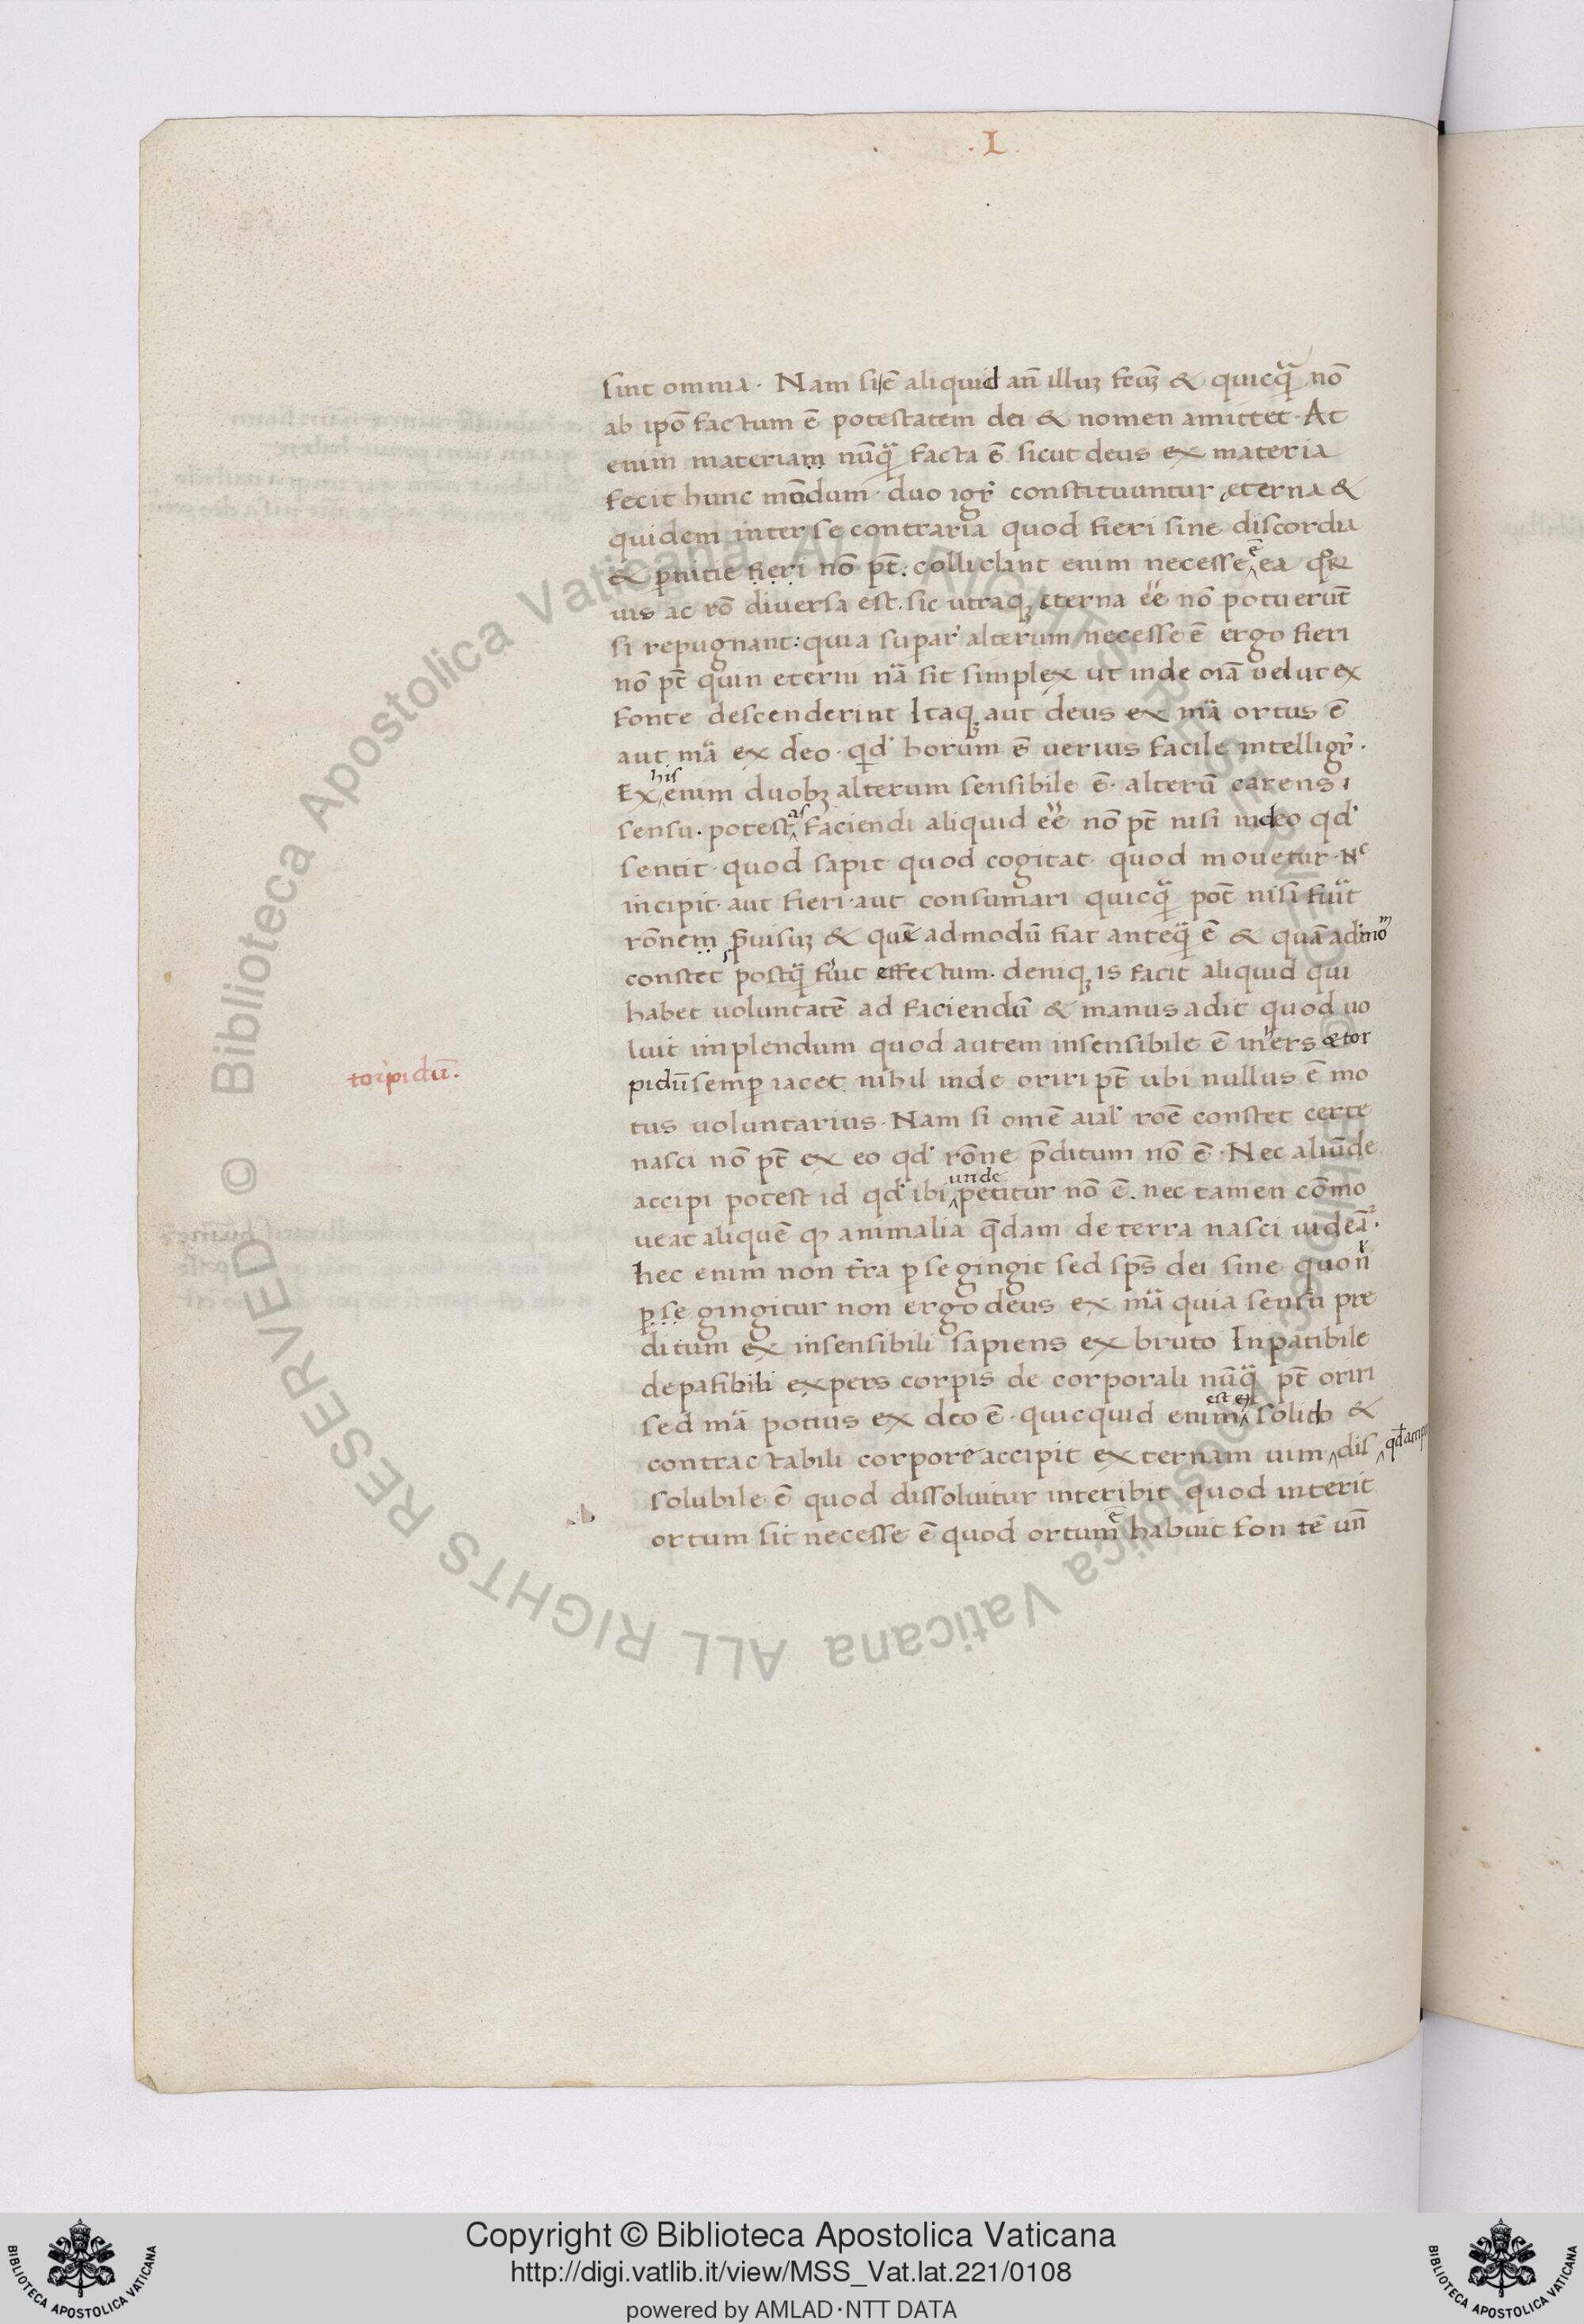 . L .
sint omnia · Nam si ē aliquid an̄ illuꝫ fcūꝫ & quicq̃ nō
ab ipō factum ē potestatem dei & nomen amittet · At
enim materiam nūq̃ facta ē sicut deus ex materia
fecit hunc mūdum · duo igr̃ constituuntur eterna &
quidem inter se contraria quod fieri sine discordia
& ꝑnitie fieri nō pt̄ : colliclant enim necesse ē ea qͦꝝ
uis ac rō diuersa est . sic utraqꝫ eterna ēē nō potuerūt
si repugnant : quia supar' alterum necesse ē ergo fieri
nō pt̄ quin eterni nã sit simplex ut inde oīa uelut ex
fonte descenderint Itaqꝫ aut deus ex mã ortus ē
aut mã ex deo · qid' horum ē uerius facile intelligr̃ ·
Ex his enim duobꝫ alterum sensibile ē · alterū carens
sensu · potestas faciendi aliquid ēē nō pt̄ nisi in deo qd'
sentit · quod sapit quod cogitat · quod mouetur · Nc
incipit · aut fieri · aut consumari quicq̃ pot̄ nisi fu̾it
rōnem p̄uisuꝫ & quē ad modū fiat anteq̃ ē & quā admom
constet postq̃ fu̾it effectum . deniqꝫ is facit aliquid qui
habet uoluntatē ad faciendū & manus adit quod uo
luit implendum quod autem insensibile ē iners & tor
pidū semꝑ iacet nihil inde oriri pt̄ ubi nullus ē mo
tus uoluntarius · Nam si omē aial' roē constet certe
nasci nō pt̄ ex eo qd' rōne p̄ditum nō ē · Nec aliūde
accipi potest id qd' ibi unde petitur nō ē . nec tamen cōmo
ueat aliquē ꝙ animalia q̄dam de terra nasci uideāt² ·
hec enim non tr̃a ꝑ se gingit sed sps̄ dei sine quo n̄
ꝑ se gingitur non ergo deus ex mã quia sensu pre
ditum ex insensibili sapiens ex bruto Inpatibile
de pasibili expers corpis de corporali nūq̃ pt̄ oriri
sed mã potius ex deo ē · quicquid enim est ex solido &
contractabili corpore accipit externam uim dis qd' accip
solubile ē quod dissoluitur interibit quod interit
ortum sit necesse ē quod ortum ē habuit fontē un̄
torpidū .